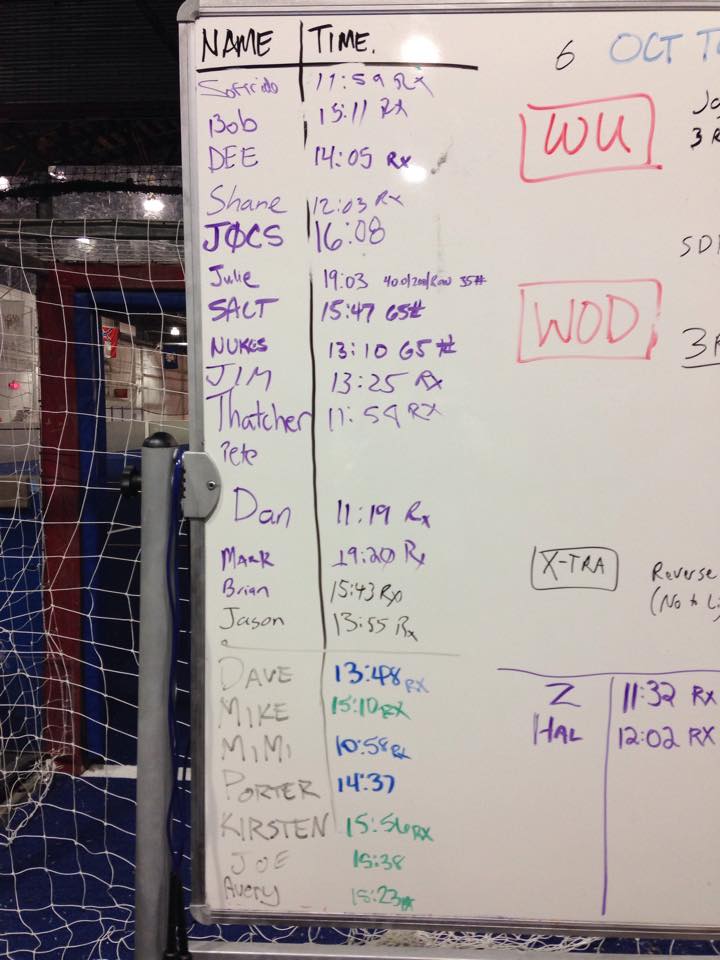 NAME TIME.
11:59 Rx
Bob 15:11 Rx
DEE 14:05 Rx
Shane 12:03 Rx
JØCS 16:08
Julie 19:03 400/200/Row 35#
SALT 15:47 65#
NUKES 13:10 65#
JIM 13:25 Rx
Thatcher 11:59 RX
Pete
Dan 11:19 Rx
MARK 19:20 Rx
Brian 15:43 Rx
Jason 13:55 Rx
DAVE 13:48 RX
MIKE 15:10 RX
MiMi 10:58 Rx
PORTER 14:37
KIRSTEN 15:56 RX
JOE 15:38
Avery 15:23 RX
6 OCT
WU
3
WOD
3
X-TRA Reverse
(No
Z 11:32 Rx
HAL 12:02 RX